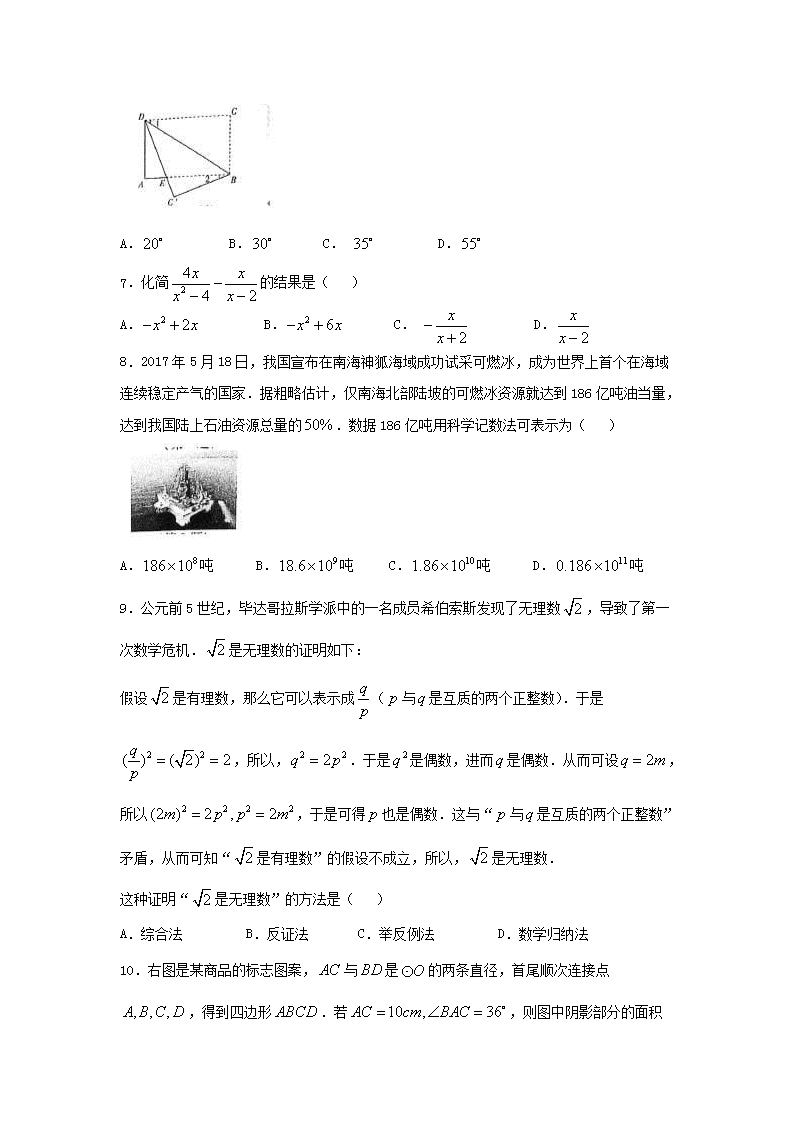 D 1 C
A E 2 B
C'
A．20° B．30° C． 35° D．55°
7．化简 4x/(x²−4) − x/(x−2) 的结果是（ ）
A．−x²+2x B．−x²+6x C． −x/(x+2) D．x/(x−2)
8．2017年5月18日，我国宣布在南海神狐海域成功试采可燃冰，成为世界上首个在海域
连续稳定产气的国家．据粗略估计，仅南海北部陆坡的可燃冰资源就达到186亿吨油当量，
达到我国陆上石油资源总量的50%．数据186亿吨用科学记数法可表示为（ ）
A．186×10⁸吨 B．18.6×10⁹吨 C．1.86×10¹⁰吨 D．0.186×10¹¹吨
9．公元前5世纪，毕达哥拉斯学派中的一名成员希伯索斯发现了无理数√2，导致了第一
次数学危机．√2是无理数的证明如下：
假设√2是有理数，那么它可以表示成q/p（p与q是互质的两个正整数）．于是
(q/p)²=(√2)²=2，所以，q²=2p²．于是q²是偶数，进而q是偶数．从而可设q=2m，
所以(2m)²=2p²,p²=2m²，于是可得p也是偶数．这与“p与q是互质的两个正整数”
矛盾，从而可知“√2是有理数”的假设不成立，所以，√2是无理数．
这种证明“√2是无理数”的方法是（ ）
A．综合法 B．反证法 C．举反例法 D．数学归纳法
10．右图是某商品的标志图案，AC与BD是⊙O的两条直径，首尾顺次连接点
A,B,C,D，得到四边形ABCD．若AC=10cm,∠BAC=36°，则图中阴影部分的面积